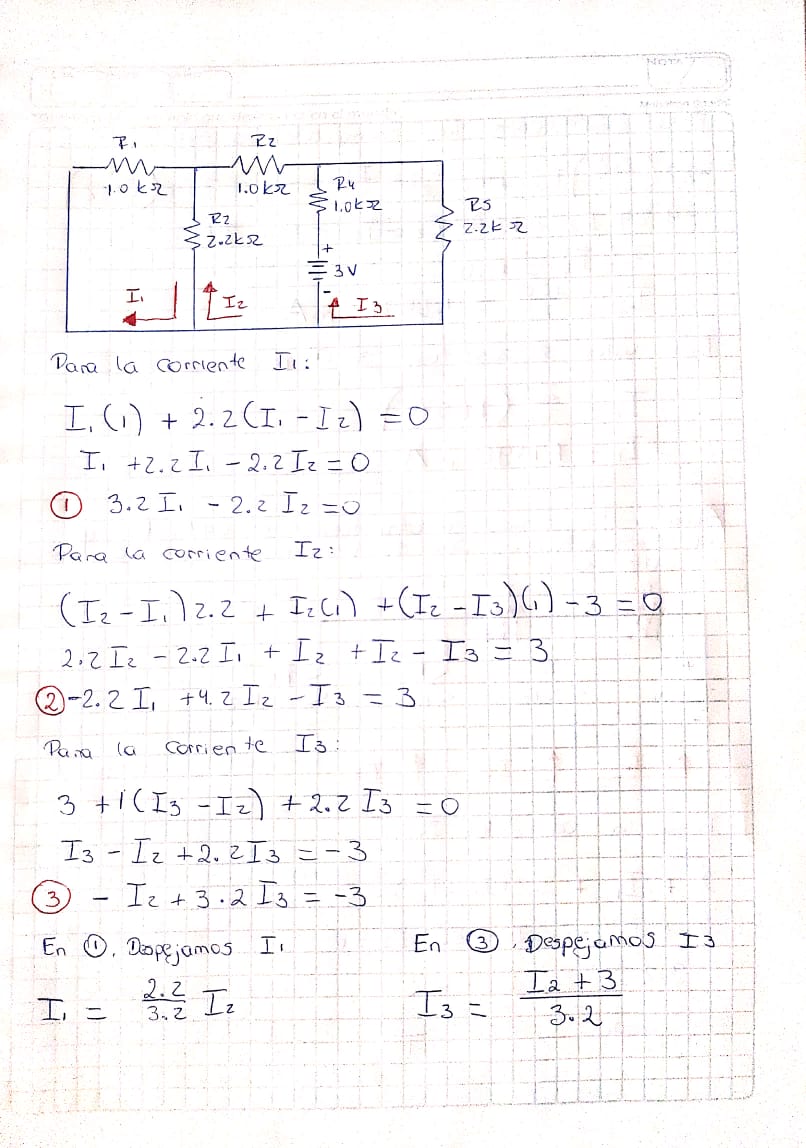 NOTA
R1
R2
1.0 kΩ
1.0kΩ
R4
1.0kΩ
R5
2.2k Ω
R2
2.2kΩ
+
3V
-
I1
I2
I3
Para la corriente I1:
I1(1) + 2.2(I1 - I2) = 0
I1 + 2.2 I1 - 2.2 I2 = 0
① 3.2 I1 - 2.2 I2 = 0
Para la corriente I2:
(I2 - I1) 2.2 + I2(1) + (I2 - I3)(1) - 3 = 0
2.2 I2 - 2.2 I1 + I2 + I2 - I3 = 3
② -2.2 I1 + 4.2 I2 - I3 = 3
Para la corriente I3:
3 + 1(I3 - I2) + 2.2 I3 = 0
I3 - I2 + 2.2 I3 = -3
③ - I2 + 3.2 I3 = -3
En ①, Despejamos I1
En ③, Despejamos I3
I1 = 2.2/3.2 I2
I3 = I2 + 3/3.2